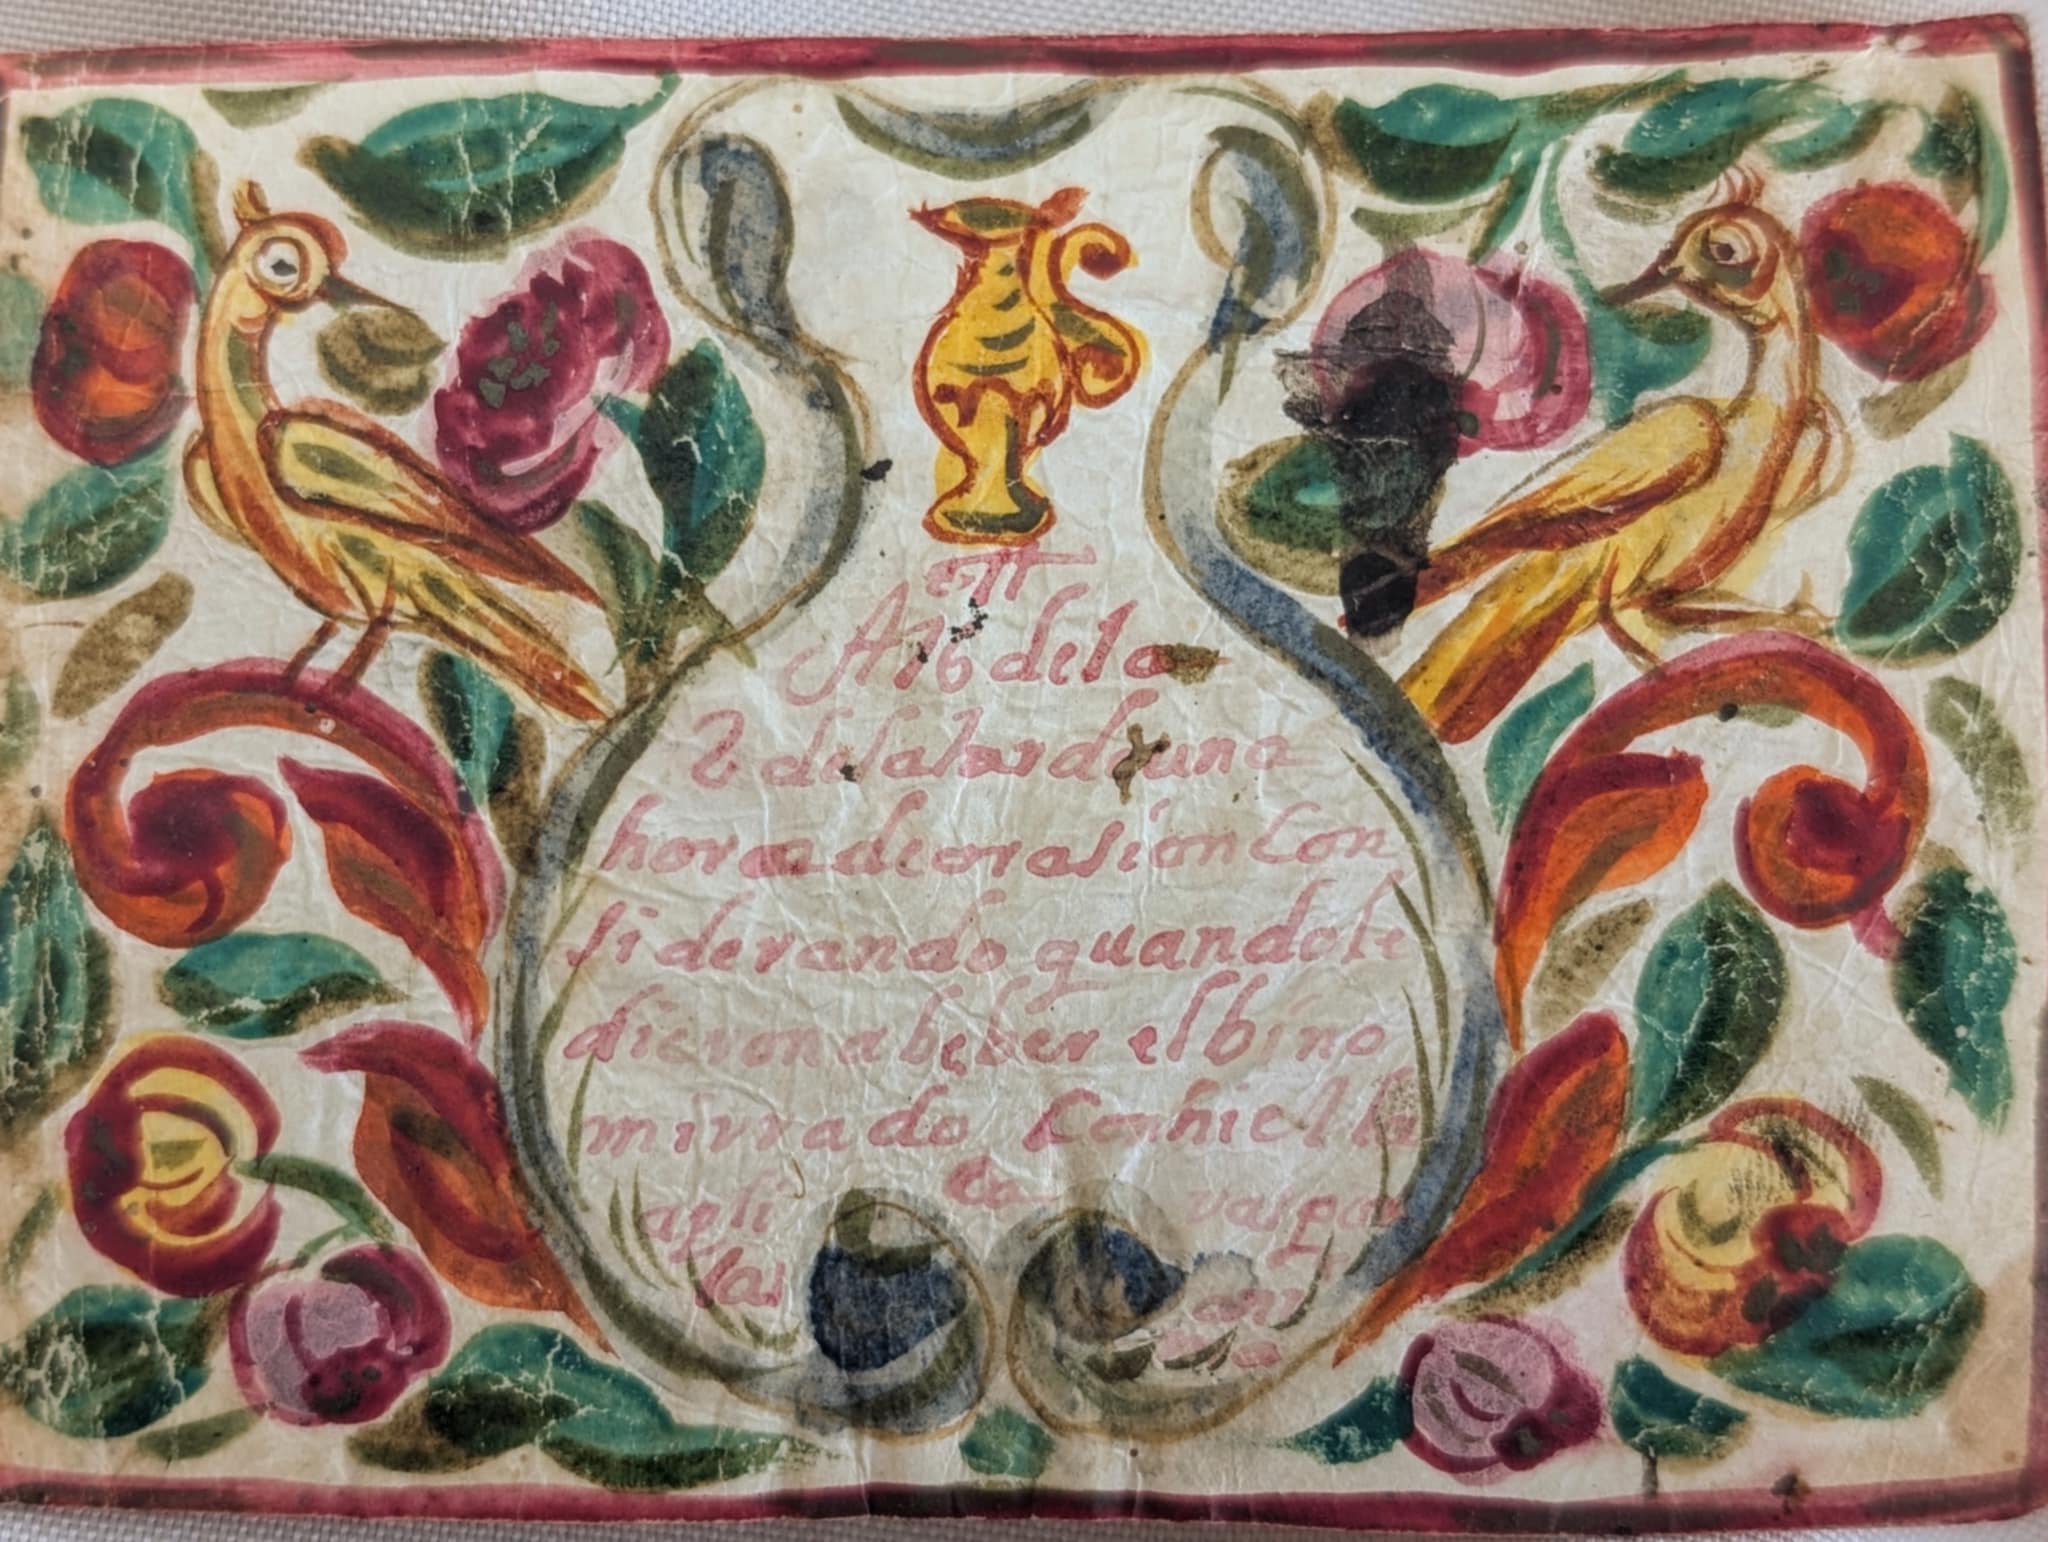 A 16 de la
2 de la tarde una
hora de orasion Con
siderando quando le
dieron a beber el bino
mirrado Con hiel la
apli Ca vas por
las